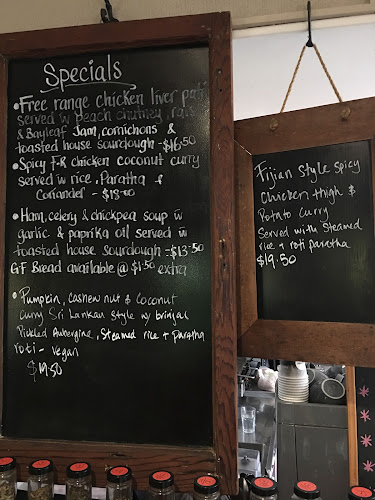 Specials
• Free range chicken liver pate
served w peach chutney, rais
& Bayleaf Jam, cornichons &
toasted house sourdough - $16.50
• Spicy F-R chicken coconut curry
served w rice, Paratha &
Coriander -
• Ham, celery & chickpea soup w
garlic & paprika oil served w
toasted house sourdough - $13.50
GF Bread available @ $1.50 extra
• Pumpkin, cashew nut & Coconut
Curry Sri Lankan Style w/ brinjal
Pickled Aubergine, Steamed rice + paratha
roti - vegan
$19.50
Fijian Style Spicy
Chicken thigh &
Potato Curry
Served with Steamed
rice + roti paratha
$19.50